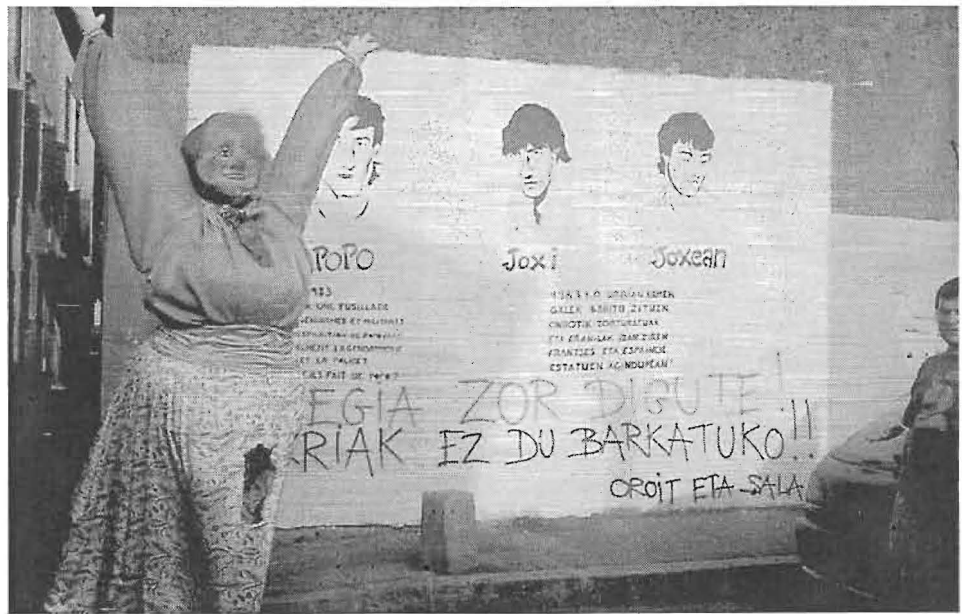 POPO
Joxi
Joxean
UNE FUSILLADE
GENDARMES ET MILITANTS
ET LA
FAIT DE
URRIAN HEMEN
GALEK BAHITU ZITUEN
TORTURATUAK
ETA ERAILAK IZAN ZIREN
FRANTSES ETA ESPAINOL
ESTATUEN AGINDUPEAN!
EGIA ZOR DIGUTE!
RIAK EZ DU BARKATUKO!!
OROIT ETA SALA